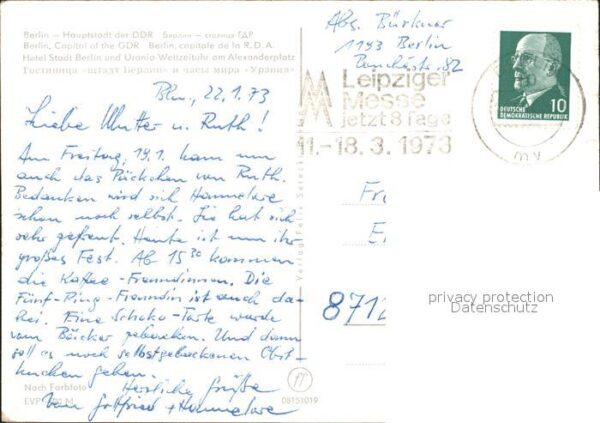 Berlin — Hauptstadt der DDR   Берлин — столица ГДР
Berlin, Capital of the GDR   Berlin, capitale de la R.D.A.
Hotel Stadt Berlin und Urania-Weltzeituhr am Alexanderplatz
Гостиница «штадт Берлин» и часы мира «Урания»
Bln, 22.1.73
Liebe Mutter u. Ruth!
Am Freitag, 19.1. kam nun
auch das Päckchen von Ruth.
Bedanken wird sich Hannelore
schon noch selbst. Sie hat sich
sehr gefreut. Heute ist nun ihr
großes Fest. Ab 15³⁰ kommen
die Kaffee-Freundinnen. Die
Fünf-Ring-Freundin ist auch da-
bei. Eine Schoko-Torte wurde
vom Bäcker gebacken. Und dann
soll es noch selbstgebackenen Obst-
kuchen geben.
Herzliche Grüße
von Gottfried + Hannelore
Nach Farbfoto
EVP
08151019
Verlag Felix Setecki
Abs. Bürkner
1193 Berlin
82
Leipziger
Messe
jetzt 8 Tage
11.-18.3.1973
DEUTSCHE
DEMOKRATISCHE REPUBLIK
10
Fr
E
8712
privacy protection
Datenschutz